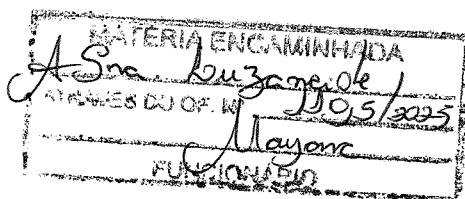 MATÉRIA ENCAMINHADA
A Sra Luzaneide
ATRAVÉS DO OF. Nº 1105/2025
Mayara
FUNCIONÁRIO